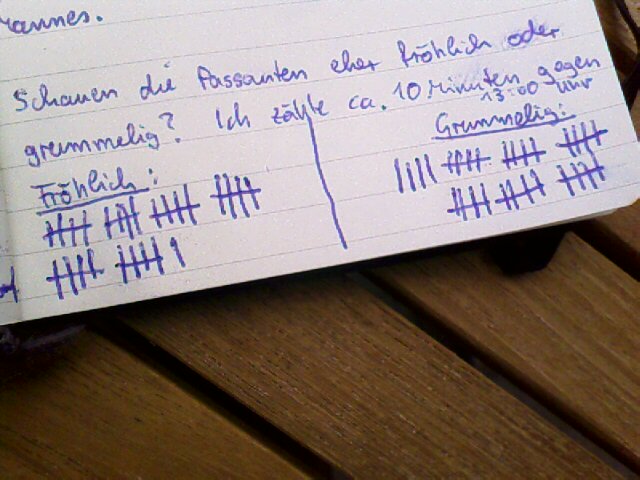 annes.
Schauen die Passanten eher fröhlich oder
grummelig? Ich zähle ca. 10 Minuten gegen
13:00 Uhr
Fröhlich:
Grummelig: